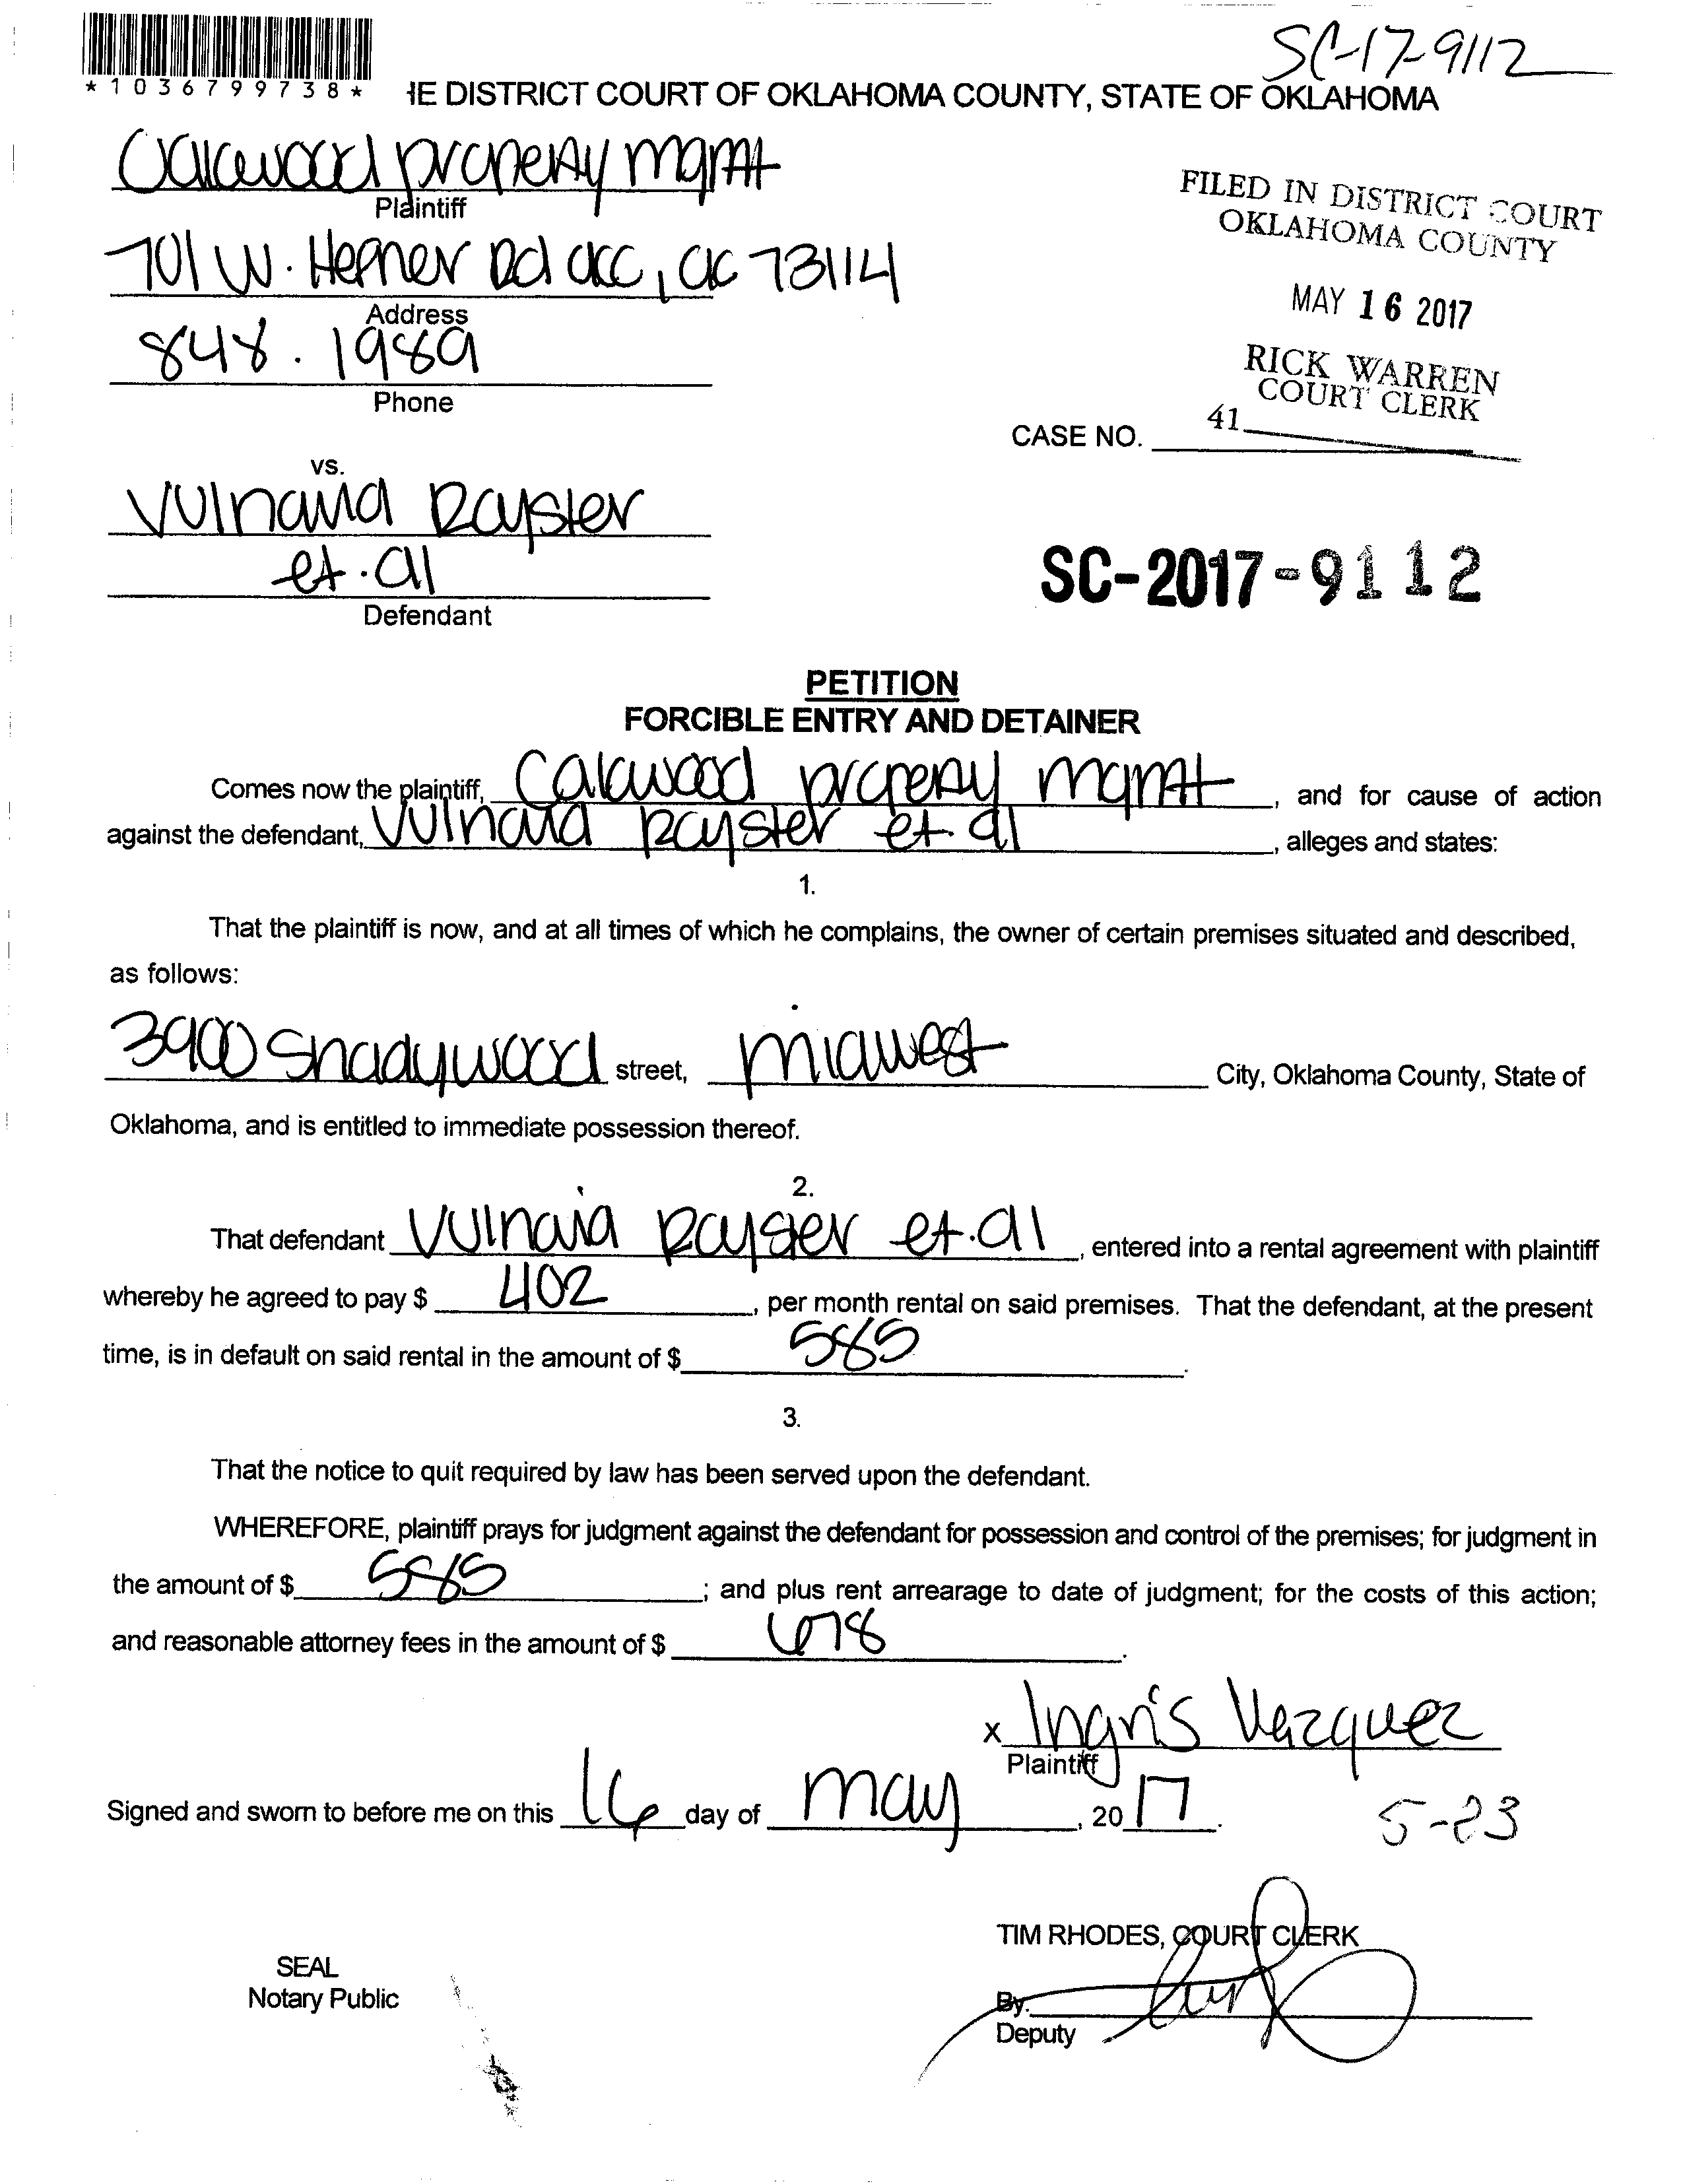 SC-17-9112
*1036799738*
HE DISTRICT COURT OF OKLAHOMA COUNTY, STATE OF OKLAHOMA
Oakwood property mgmt
Plaintiff
701 W. Hefner Rd okc, ok 73114
Address
848.1989
Phone
FILED IN DISTRICT COURT
OKLAHOMA COUNTY
MAY 16 2017
RICK WARREN
COURT CLERK
41
CASE NO.
vs.
Royster
et.al
Defendant
SC-2017-9112
PETITION
FORCIBLE ENTRY AND DETAINER
Comes now the plaintiff, Oakwood property mgmt, and for cause of action
against the defendant, Royster et.al, alleges and states:
1.
That the plaintiff is now, and at all times of which he complains, the owner of certain premises situated and described,
as follows:
3900 Shadywood street, midwest City, Oklahoma County, State of
Oklahoma, and is entitled to immediate possession thereof.
2.
That defendant Royster et.al, entered into a rental agreement with plaintiff
whereby he agreed to pay $ 402, per month rental on said premises. That the defendant, at the present
time, is in default on said rental in the amount of $ 585.
3.
That the notice to quit required by law has been served upon the defendant.
WHEREFORE, plaintiff prays for judgment against the defendant for possession and control of the premises; for judgment in
the amount of $ 585; and plus rent arrearage to date of judgment; for the costs of this action;
and reasonable attorney fees in the amount of $ 678.
x Ingris Vazquez
Plaintiff
Signed and sworn to before me on this 16 day of may, 2017.
5-23
TIM RHODES, COURT CLERK
SEAL
Notary Public
By.
Deputy